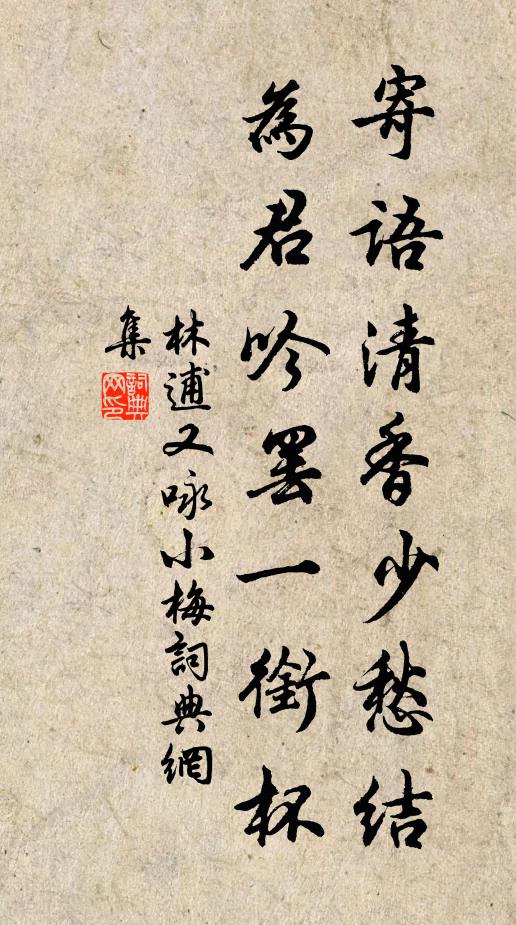 寄語清香少愁結
為君吟罷一銜杯
林逋又咏小梅詞典網
集
詞典
网印